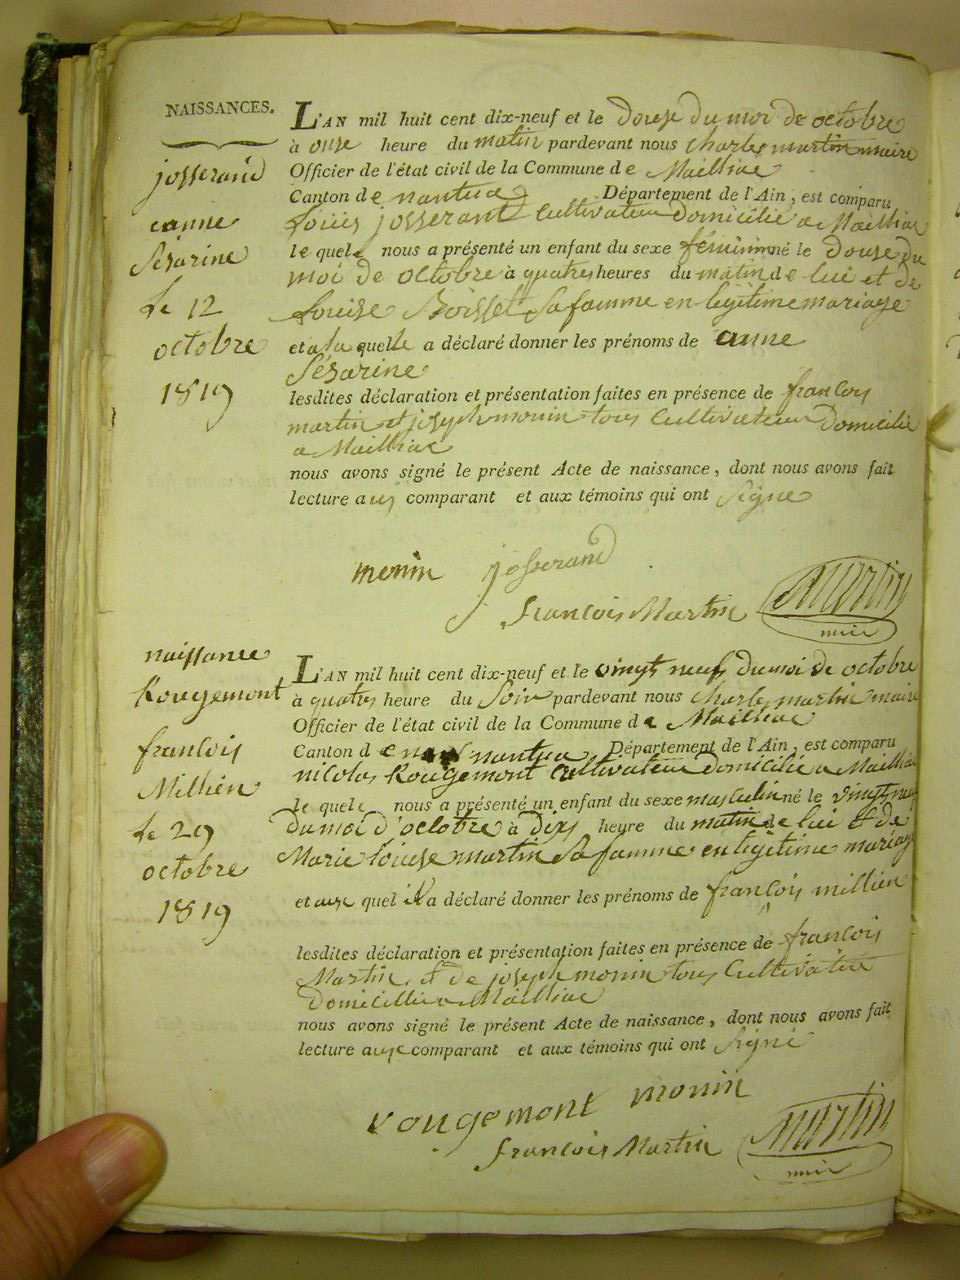 NAISSANCES.
josserand
canne
Sésarine
Le 12
octobre
1819
L'AN mil huit cent dix-neuf et le douse du moi de octobre
à onse heure du matin pardevant nous charles martin maire
Officier de l'état civil de la Commune de Mailliac
Canton de nantua Département de l'Ain, est comparu
Louis josserant Cultivateur domicilié a Mailliac
le quel nous a présenté un enfant du sexe féminin né le douse du
moi de octobre à quatre heures du matin de lui et de
Louise Boisset Sa famme en legitime mariage
et a la quelle a déclaré donner les prénoms de anne
Sésarine
lesdites déclaration et présentation faites en présence de françois
martin et joseph monin tous Cultivateur domicilié
a Mailliac
nous avons signé le présent Acte de naissance, dont nous avons fait
lecture aus comparant et aux témoins qui ont Signe
monin josserand
françois Martin Martin
maire
naissance
Rougemont
françois
Millien
Le 29
octobre
1819
L'AN mil huit cent dix-neuf et le vingt neuf du moi de octobre
à quatre heure du Soir pardevant nous charles martin maire
Officier de l'état civil de la Commune de Mailliac
Canton de nantua Département de l'Ain, est comparu
nicolas Rougemont Cultivateur domicilié a Mailliac
le quel nous a présenté un enfant du sexe masculin né le vingt neuf
du moi d'octobre à dixs heure du matin de lui et de
Marie Louise martin Sa famme en legitime mariage
et auquel il a déclaré donner les prénoms de françois millien
lesdites déclaration et présentation faites en présence de françois
Martin et de joseph monin tous Cultivateur
domicillié a Mailliac
nous avons signé le présent Acte de naissance, dont nous avons fait
lecture comparant et aux témoins qui ont Signé
rougemont monin
françois Martin Martin
maire